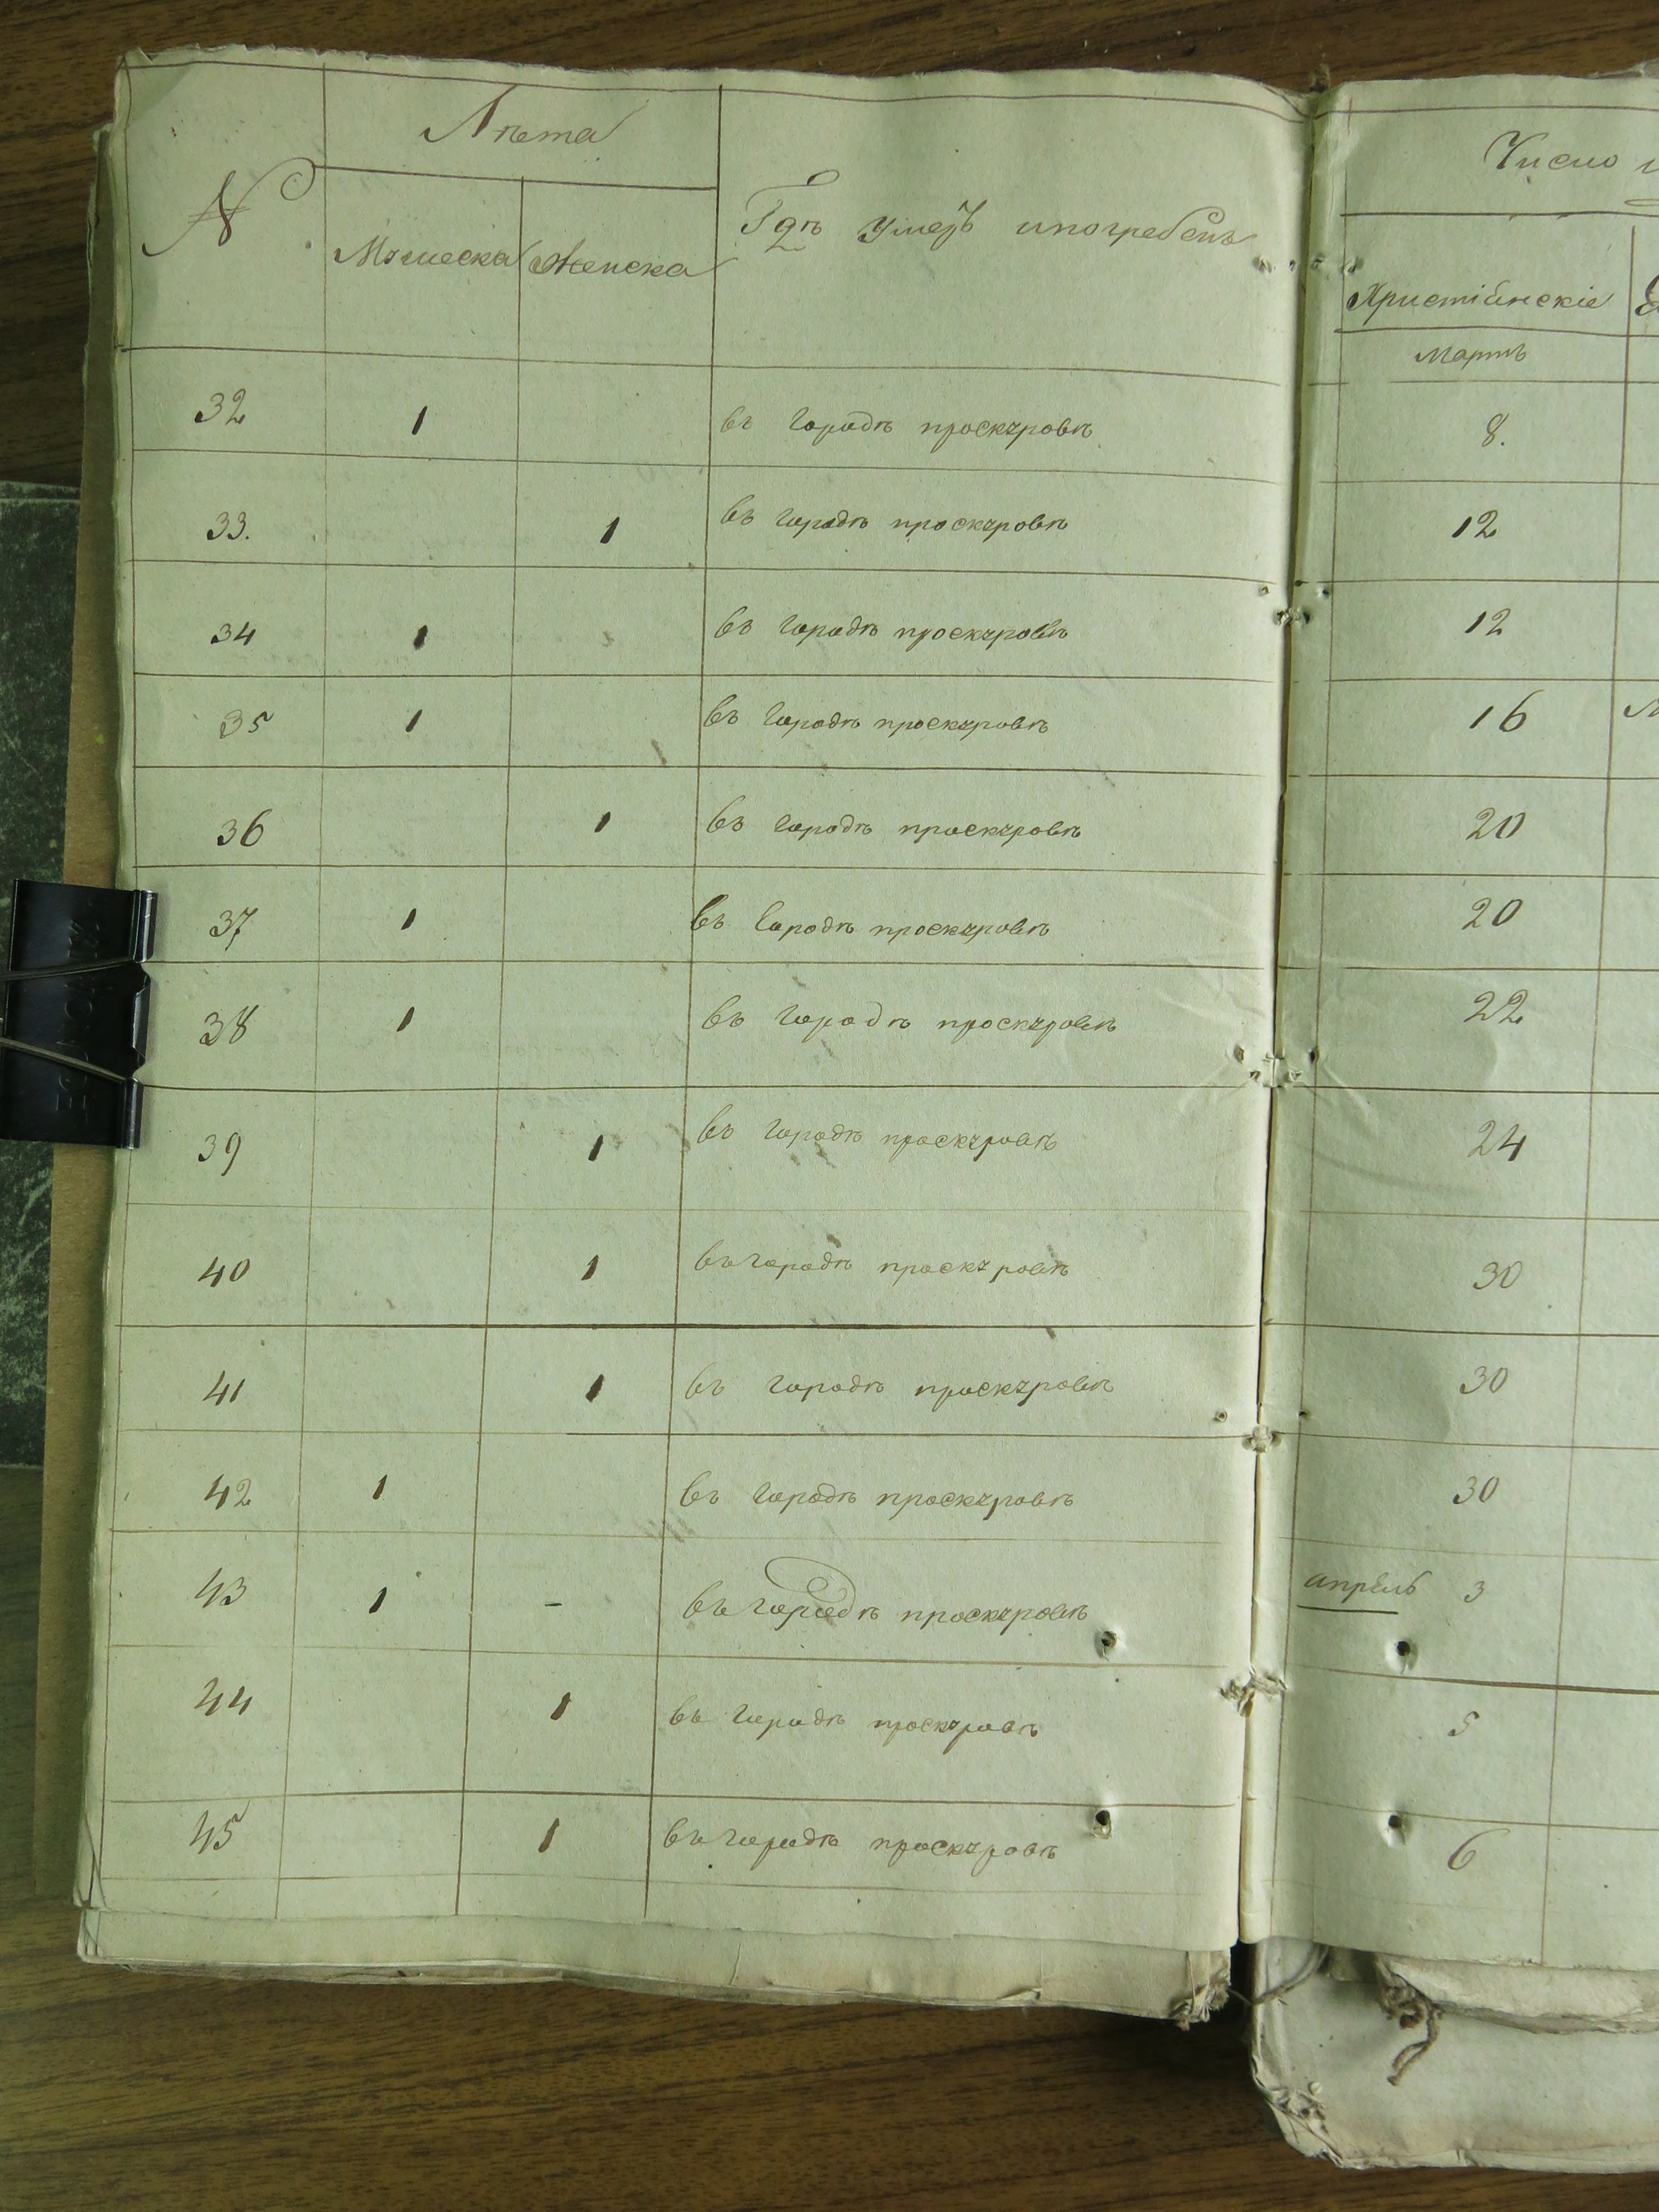 №
Лѣта
Мужеска Женска
Гдѣ умеръ ипогребенъ
Число
Християнскіе
Мартъ
32 1 въ городѣ проскуровѣ 8.
33. 1 въ городѣ проскуровѣ 12
34 1 въ городѣ проскуровѣ 12
35 1 въ городѣ проскуровѣ 16
36 1 въ городѣ проскуровѣ 20
37 1 въ городѣ проскуровѣ 20
38 1 въ городѣ проскуровѣ 22
39 1 въ городѣ проскуровѣ 24
40 1 въ городѣ проскуровѣ 30
41 1 въ городѣ проскуровѣ 30
42 1 въ городѣ проскуровѣ 30
43 1 - въ городѣ проскуровѣ апрель 3
44 1 въ городѣ проскуровѣ 5
45 1 въ городѣ проскуровѣ 6